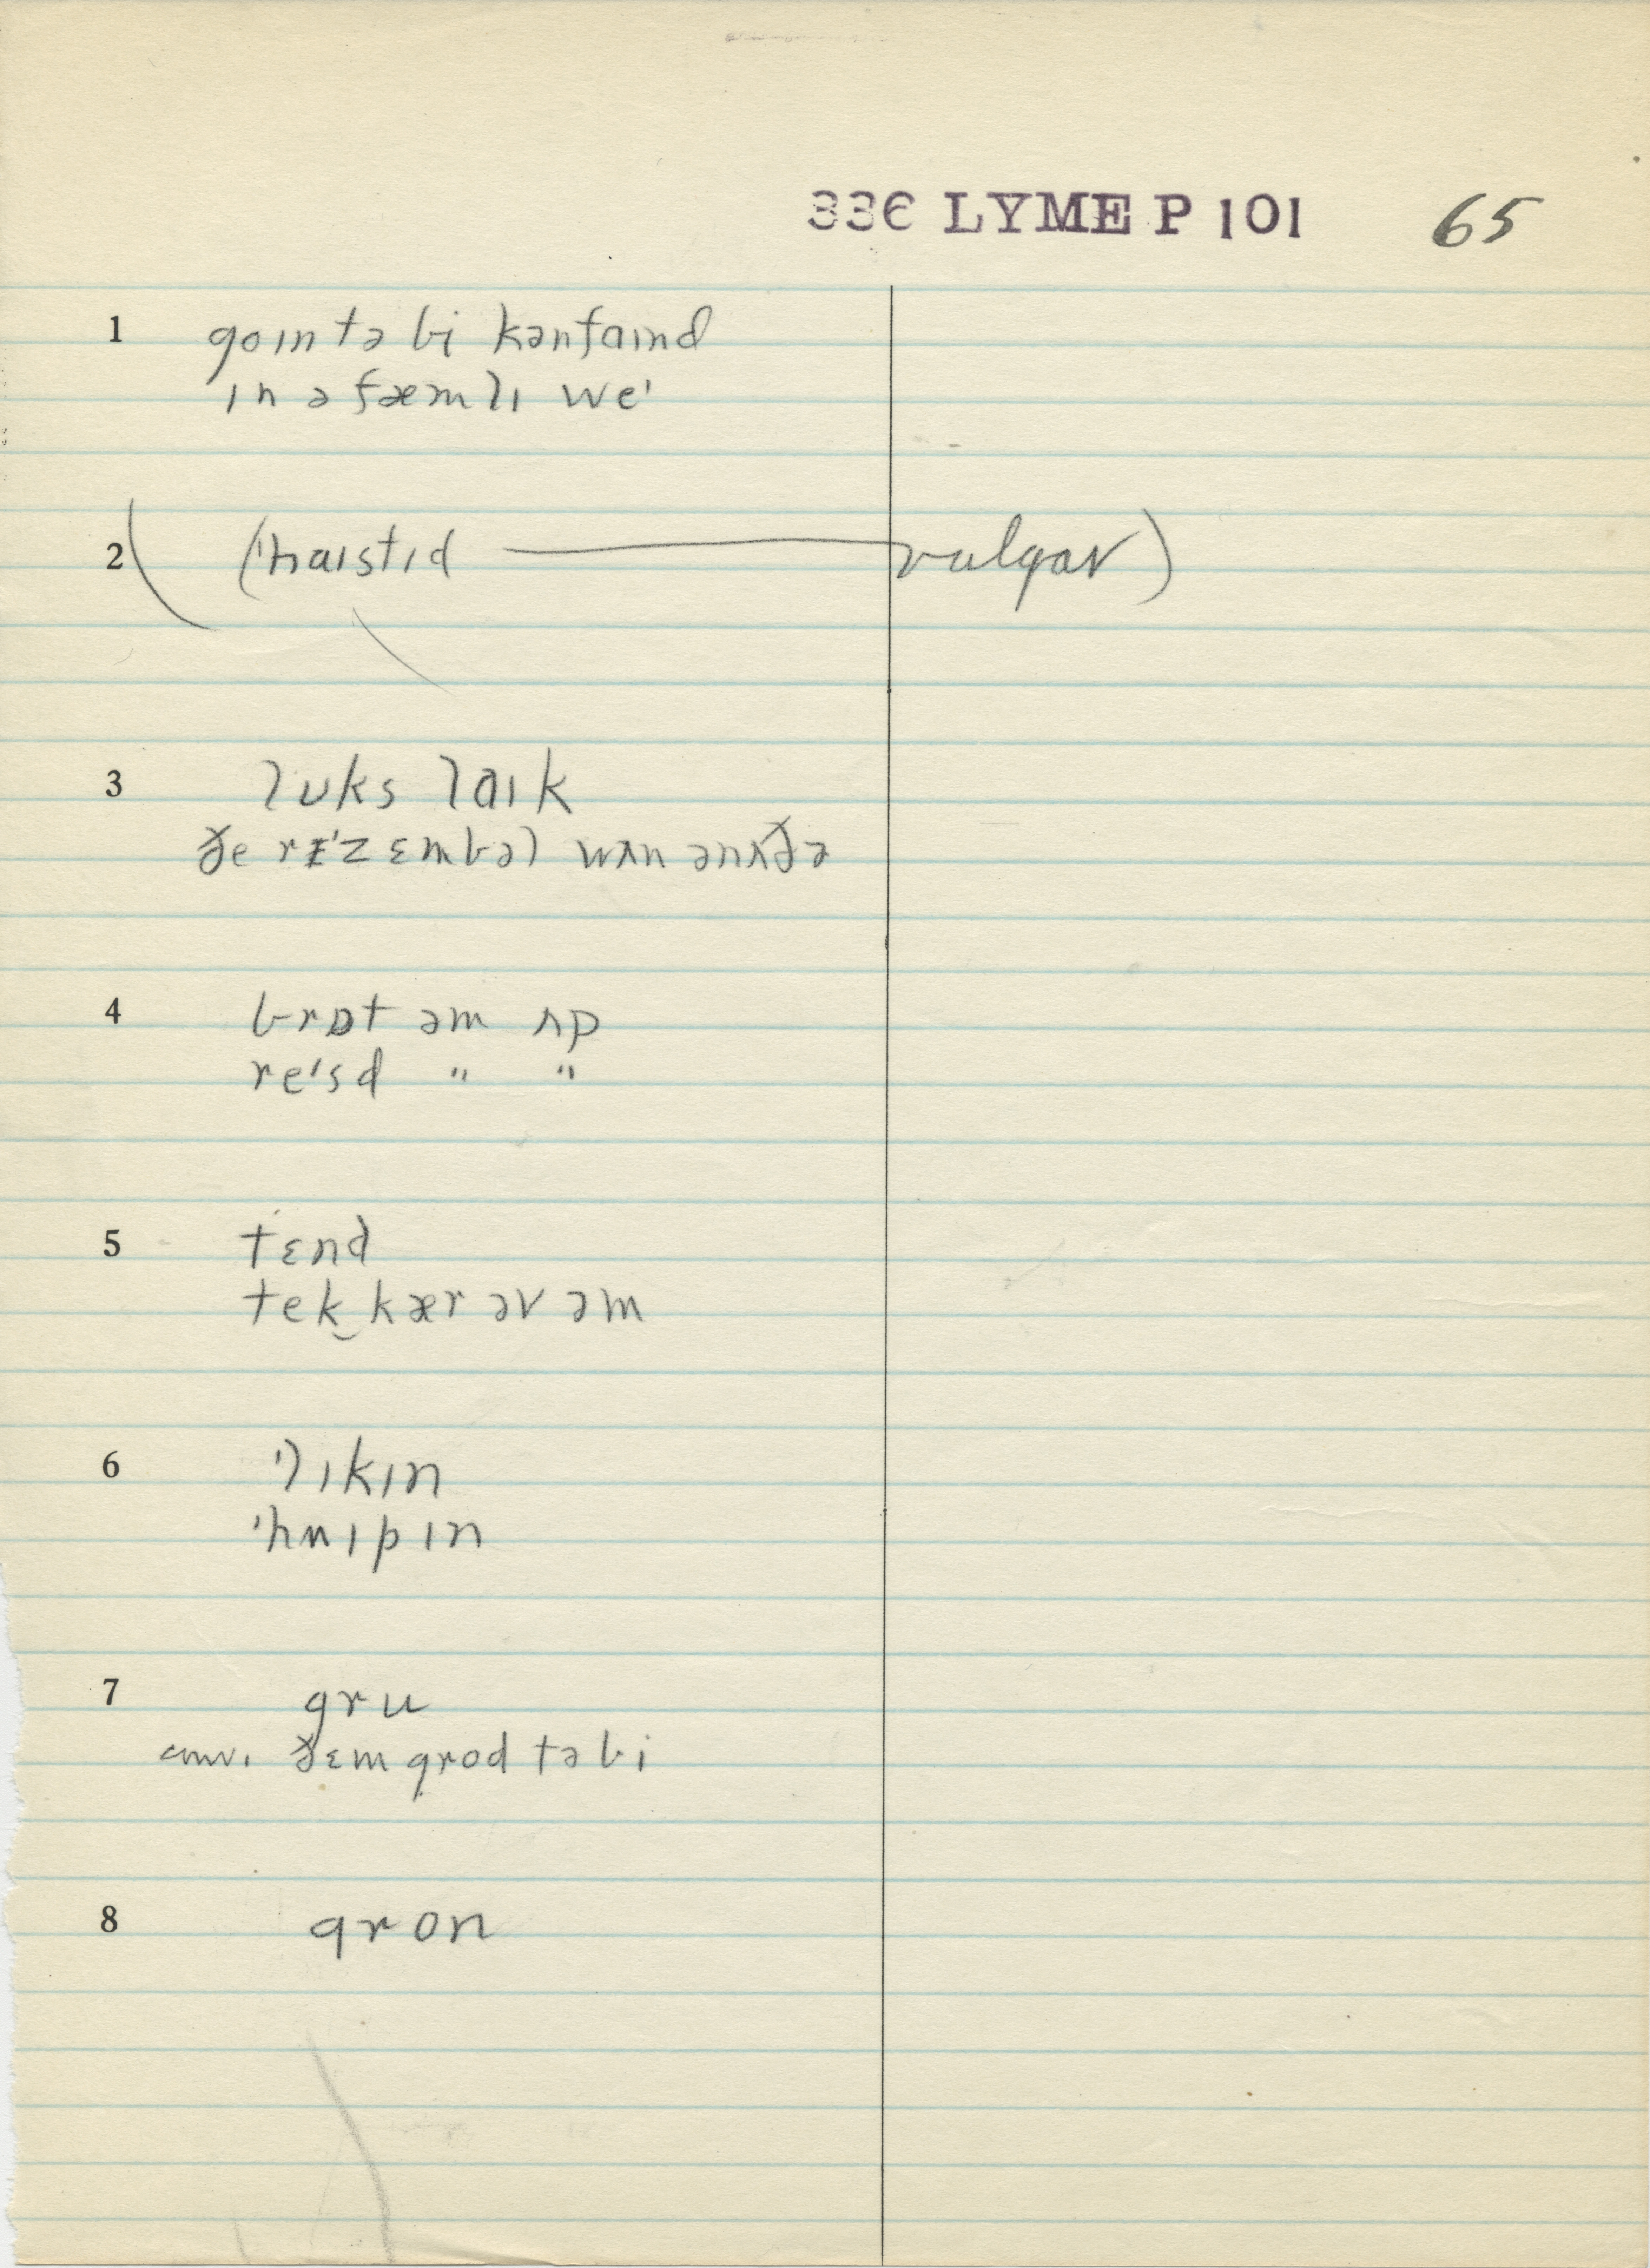 336 LYME P 101 65
1 goɪn tə bi kənfaɪnd
ɪn ə fæmlɪ weᶦ
2 (ˈhaɪstɪd — vulgar)
3 lʊks laɪk
ðe rɪˈzɛmbəl wʌn ənʌðə
4 brɒt əm ʌp
reᶦsd " "
5 tɛnd
tek‿kær əv əm
6 ˈlɪkɪn
ˈhwɪpɪn
7 gru
conv. ðɛm grod tə bi
8 gron